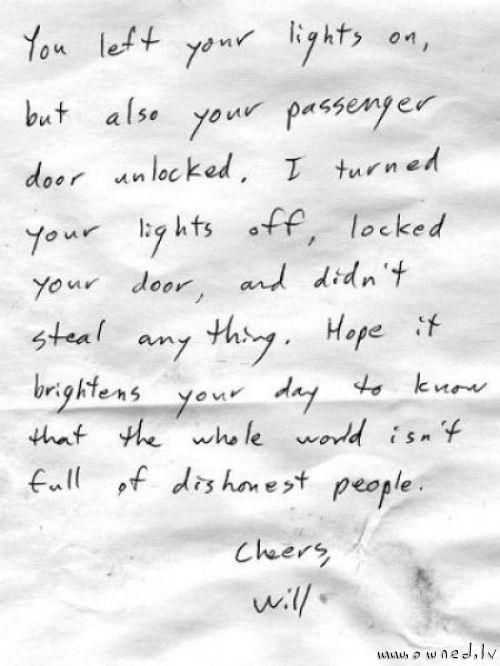 You left your lights on,
but also your passenger
door unlocked. I turned
your lights off, locked
your door, and didn't
steal anything. Hope it
brightens your day to know
that the whole world isn't
full of dishonest people.
Cheers,
Will
www.owned.lv